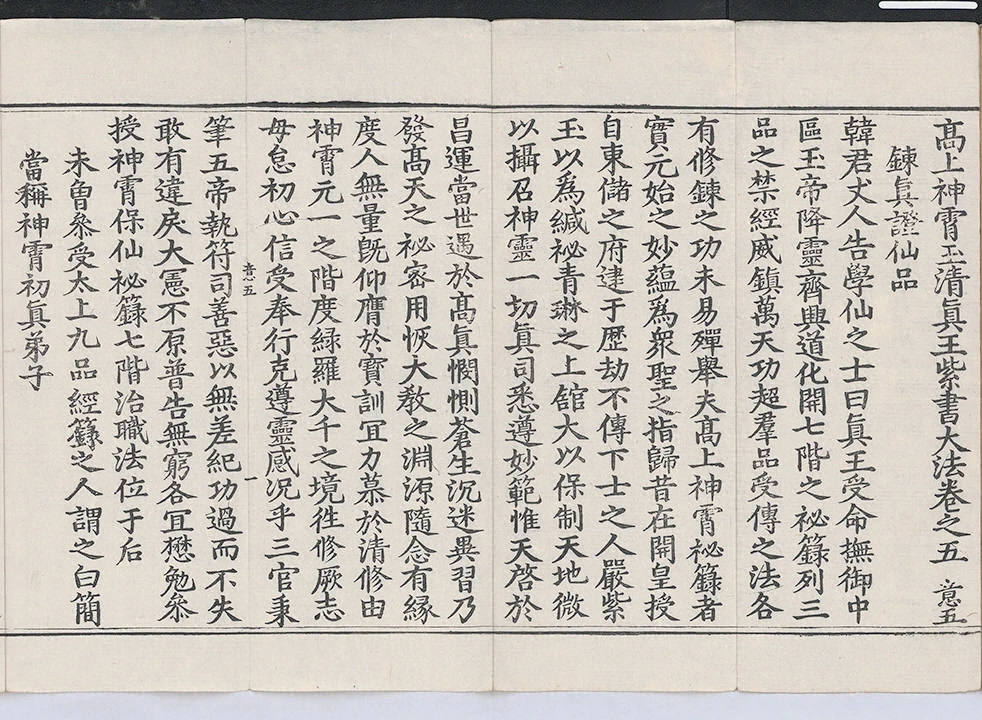 高上神霄玉清眞王紫書大法卷之五 意五
鍊眞證仙品
韓君丈人告學仙之士曰眞王受命撫御中
區玉帝降靈齊興道化開七階之祕籙列三
品之禁經威鎮萬天功超羣品受傳之法各
有修鍊之功未易殫舉夫高上神霄祕籙者
實元始之妙蘊爲衆聖之指歸昔在開皇授
自東儲之府逮于歷劫不傳下士之人嚴紫
玉以爲緘祕青琳之上舘大以保制天地微
以攝召神靈一切眞司悉遵妙範惟天啓於
昌運當世遇於高眞憫惻蒼生沉迷異習乃
發高天之祕密用恢大敎之淵源隨念有緣
度人無量旣仰膺於寶訓冝力慕於清修由
神霄元一之階度緑羅大千之境徃修厥志
毋怠初心信受奉行克遵靈感况乎三官秉
意五 一
筆五帝執符司善惡以無差紀功過而不失
敢有違戾大憲不原普告無窮各冝懋勉叅
授神霄保仙祕籙七階治職法位于后
未曾叅受太上九品經籙之人謂之白簡
當稱神霄初眞弟子